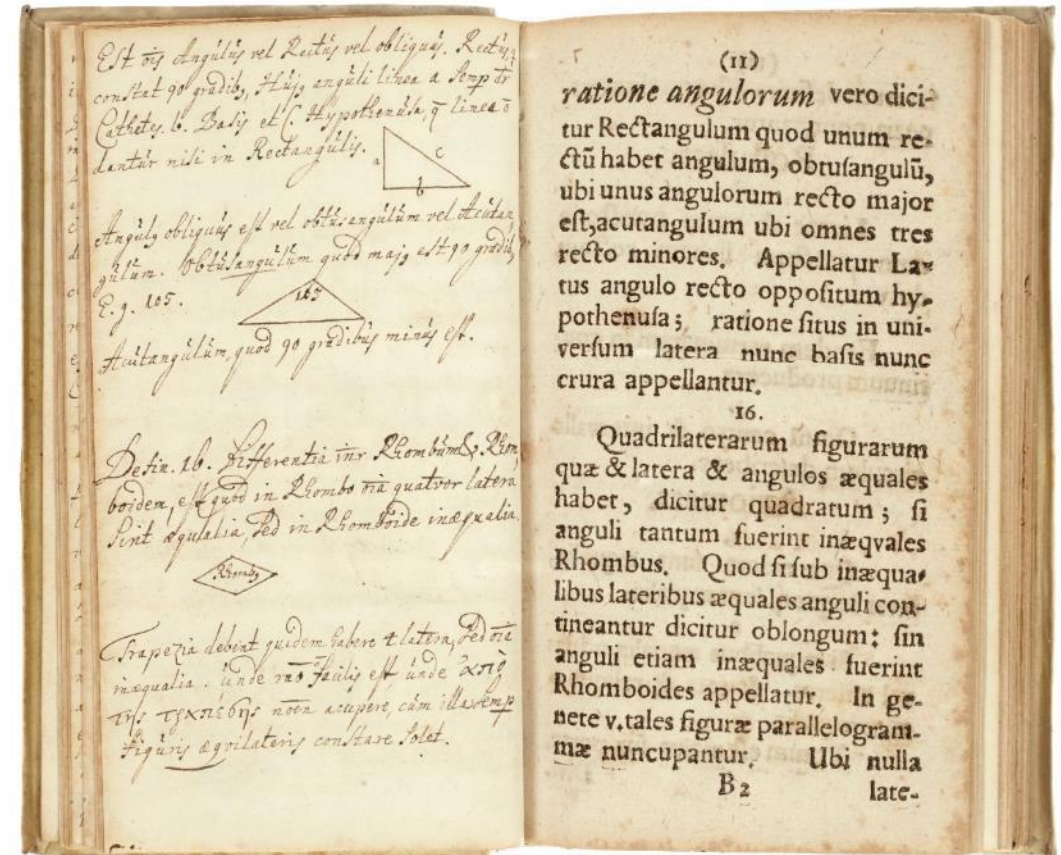 Est o͞is Angulus vel Rectus vel obliquus. Rectus
constat 90 gradib9, Huj9 anguli linea a Semp dr
Cathetus. b. Basis et C. Hypothenusa, q̄ linea ō
dantur nisi in Rectangulis.
a c
b
Angul9 obliquus est vel obtusangulum vel Acutan,
gulum. Obtusangulum quod maj9 est 90 gradib9,
E. g. 105.
105
Acutangulum, quod 90 gradibus minus est.
Defin. 16. Differentia int͞r Rhombum & Rhom,
boidem, est quod in Rhombo o͞ia quatvor latera
sint æqulalia, sed in Rhomboide inæqualia.
Rhomb9
Trapezia debent quidem habere 4 latera, sed o͞ia
inæqualia. unde facilis est unde ἀπὸ
τῆς noen acupere, cum illa semp
figuris æqvilateris constare solet.
(11)
ratione angulorum vero dici-
tur Rectangulum quod unum re-
ctū habet angulum, obtuſangulū,
ubi unus angulorum recto major
eſt,acutangulum ubi omnes tres
recto minores. Appellatur La-
tus angulo recto oppoſitum hy-
pothenuſa; ratione ſitus in uni-
verſum latera nunc baſis nunc
crura appellantur.
16.
Quadrilaterarum figurarum
quæ & latera & angulos æquales
habet, dicitur quadratum; ſi
anguli tantum fuerint inæqvales
Rhombus. Quod ſi ſub inæqua-
libus lateribus æquales anguli con-
tineantur dicitur oblongum: ſin
anguli etiam inæquales fuerint
Rhomboides appellatur. In ge-
nere v.tales figuræ parallelogram-
mæ nuncupantur. Ubi nulla
B 2 late-